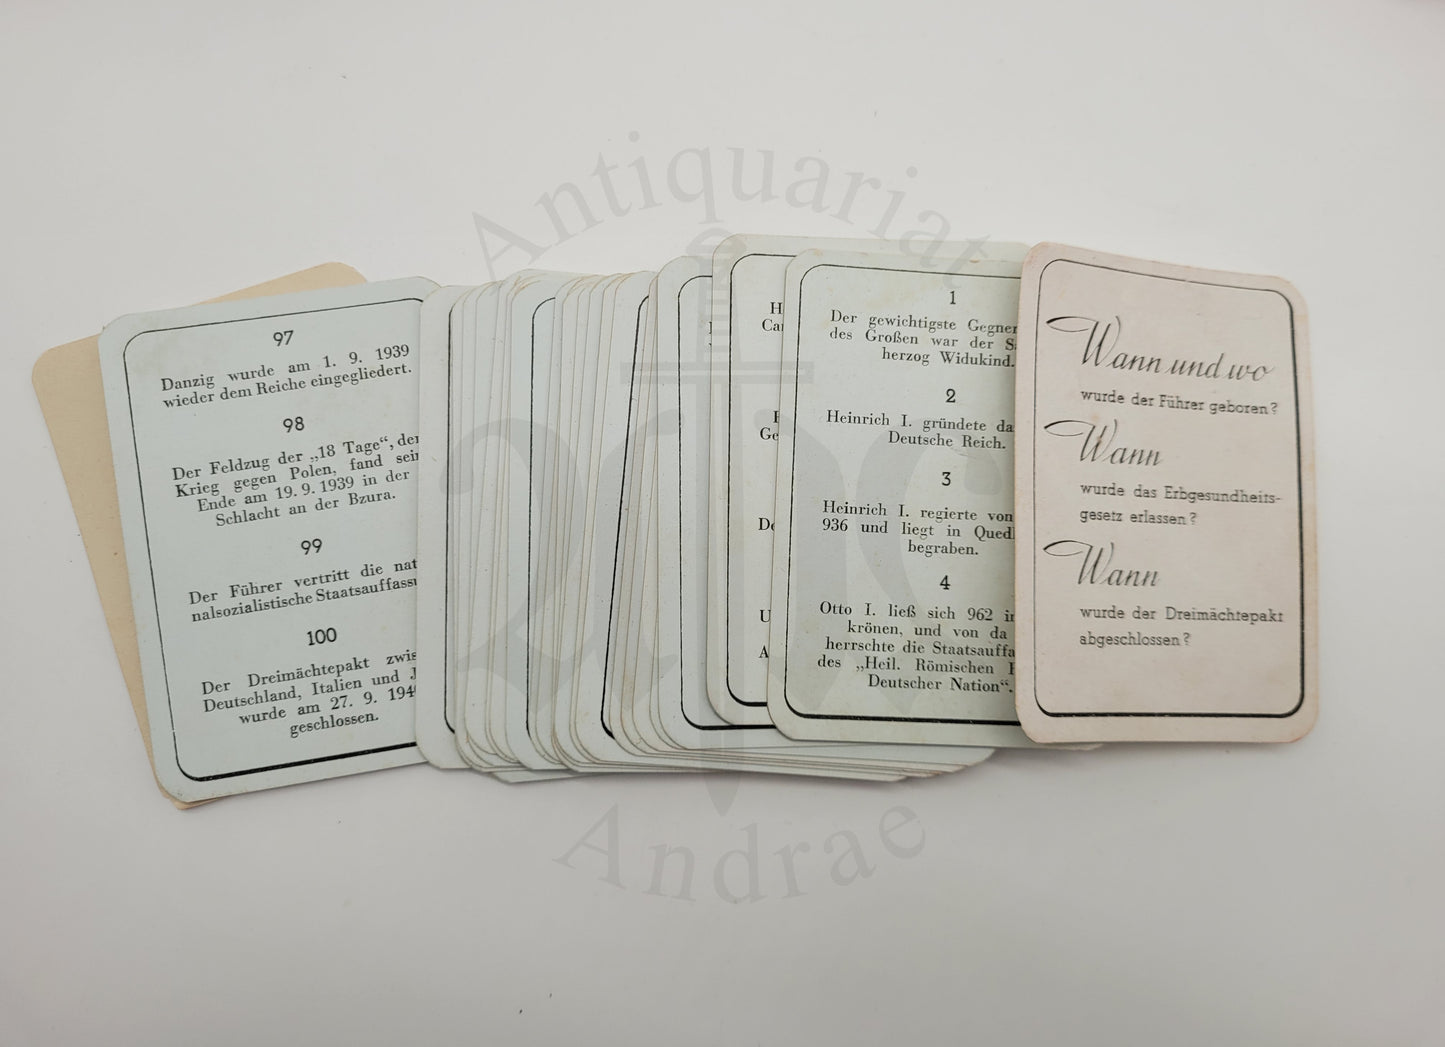 97
Danzig wurde am 1. 9. 1939
wieder dem Reiche eingegliedert.
98
Der Feldzug der „18 Tage“, der
Krieg gegen Polen, fand sein
Ende am 19. 9. 1939 in der
Schlacht an der Bzura.
99
Der Führer vertritt die nat
nalsozialistische Staatsauffassu
100
Der Dreimächtepakt zwis
Deutschland, Italien und J
wurde am 27. 9. 194
geschlossen.
H
Car
Ge
De
U
A
1
Der gewichtigste Gegner
des Großen war der S
herzog Widukind.
2
Heinrich I. gründete da
Deutsche Reich.
3
Heinrich I. regierte von
936 und liegt in Quedl
begraben.
4
Otto I. ließ sich 962 in
krönen, und von da
herrschte die Staatsauffa
des „Heil. Römischen
Deutscher Nation“.
Wann und wo
wurde der Führer geboren?
Wann
wurde das Erbgesundheits-
gesetz erlassen?
Wann
wurde der Dreimächtepakt
abgeschlossen?
Antiquariat
Andrae